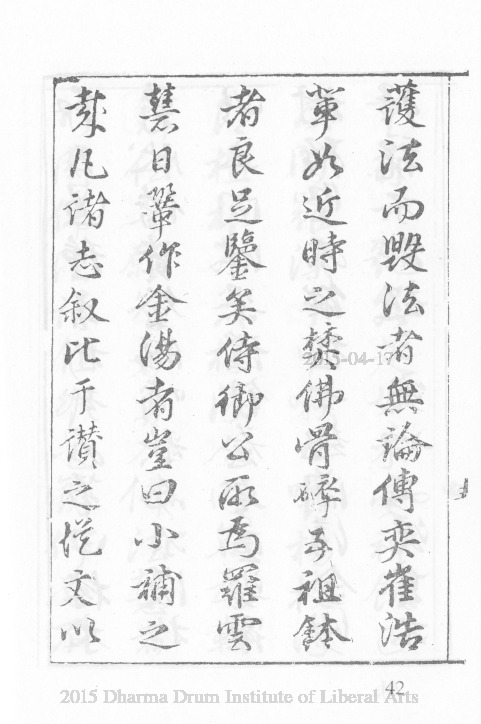 護法而毀法者無論傅奕崔浩
輩如近時之焚佛骨碎子祖鉢
者良足鑒矣侍御公所為羅雲
慧日鞏作金湯者豈曰小補之
哉凡諸志敘比于讚之從文以
2015-04-17
42
2015 Dharma Drum Institute of Liberal Arts